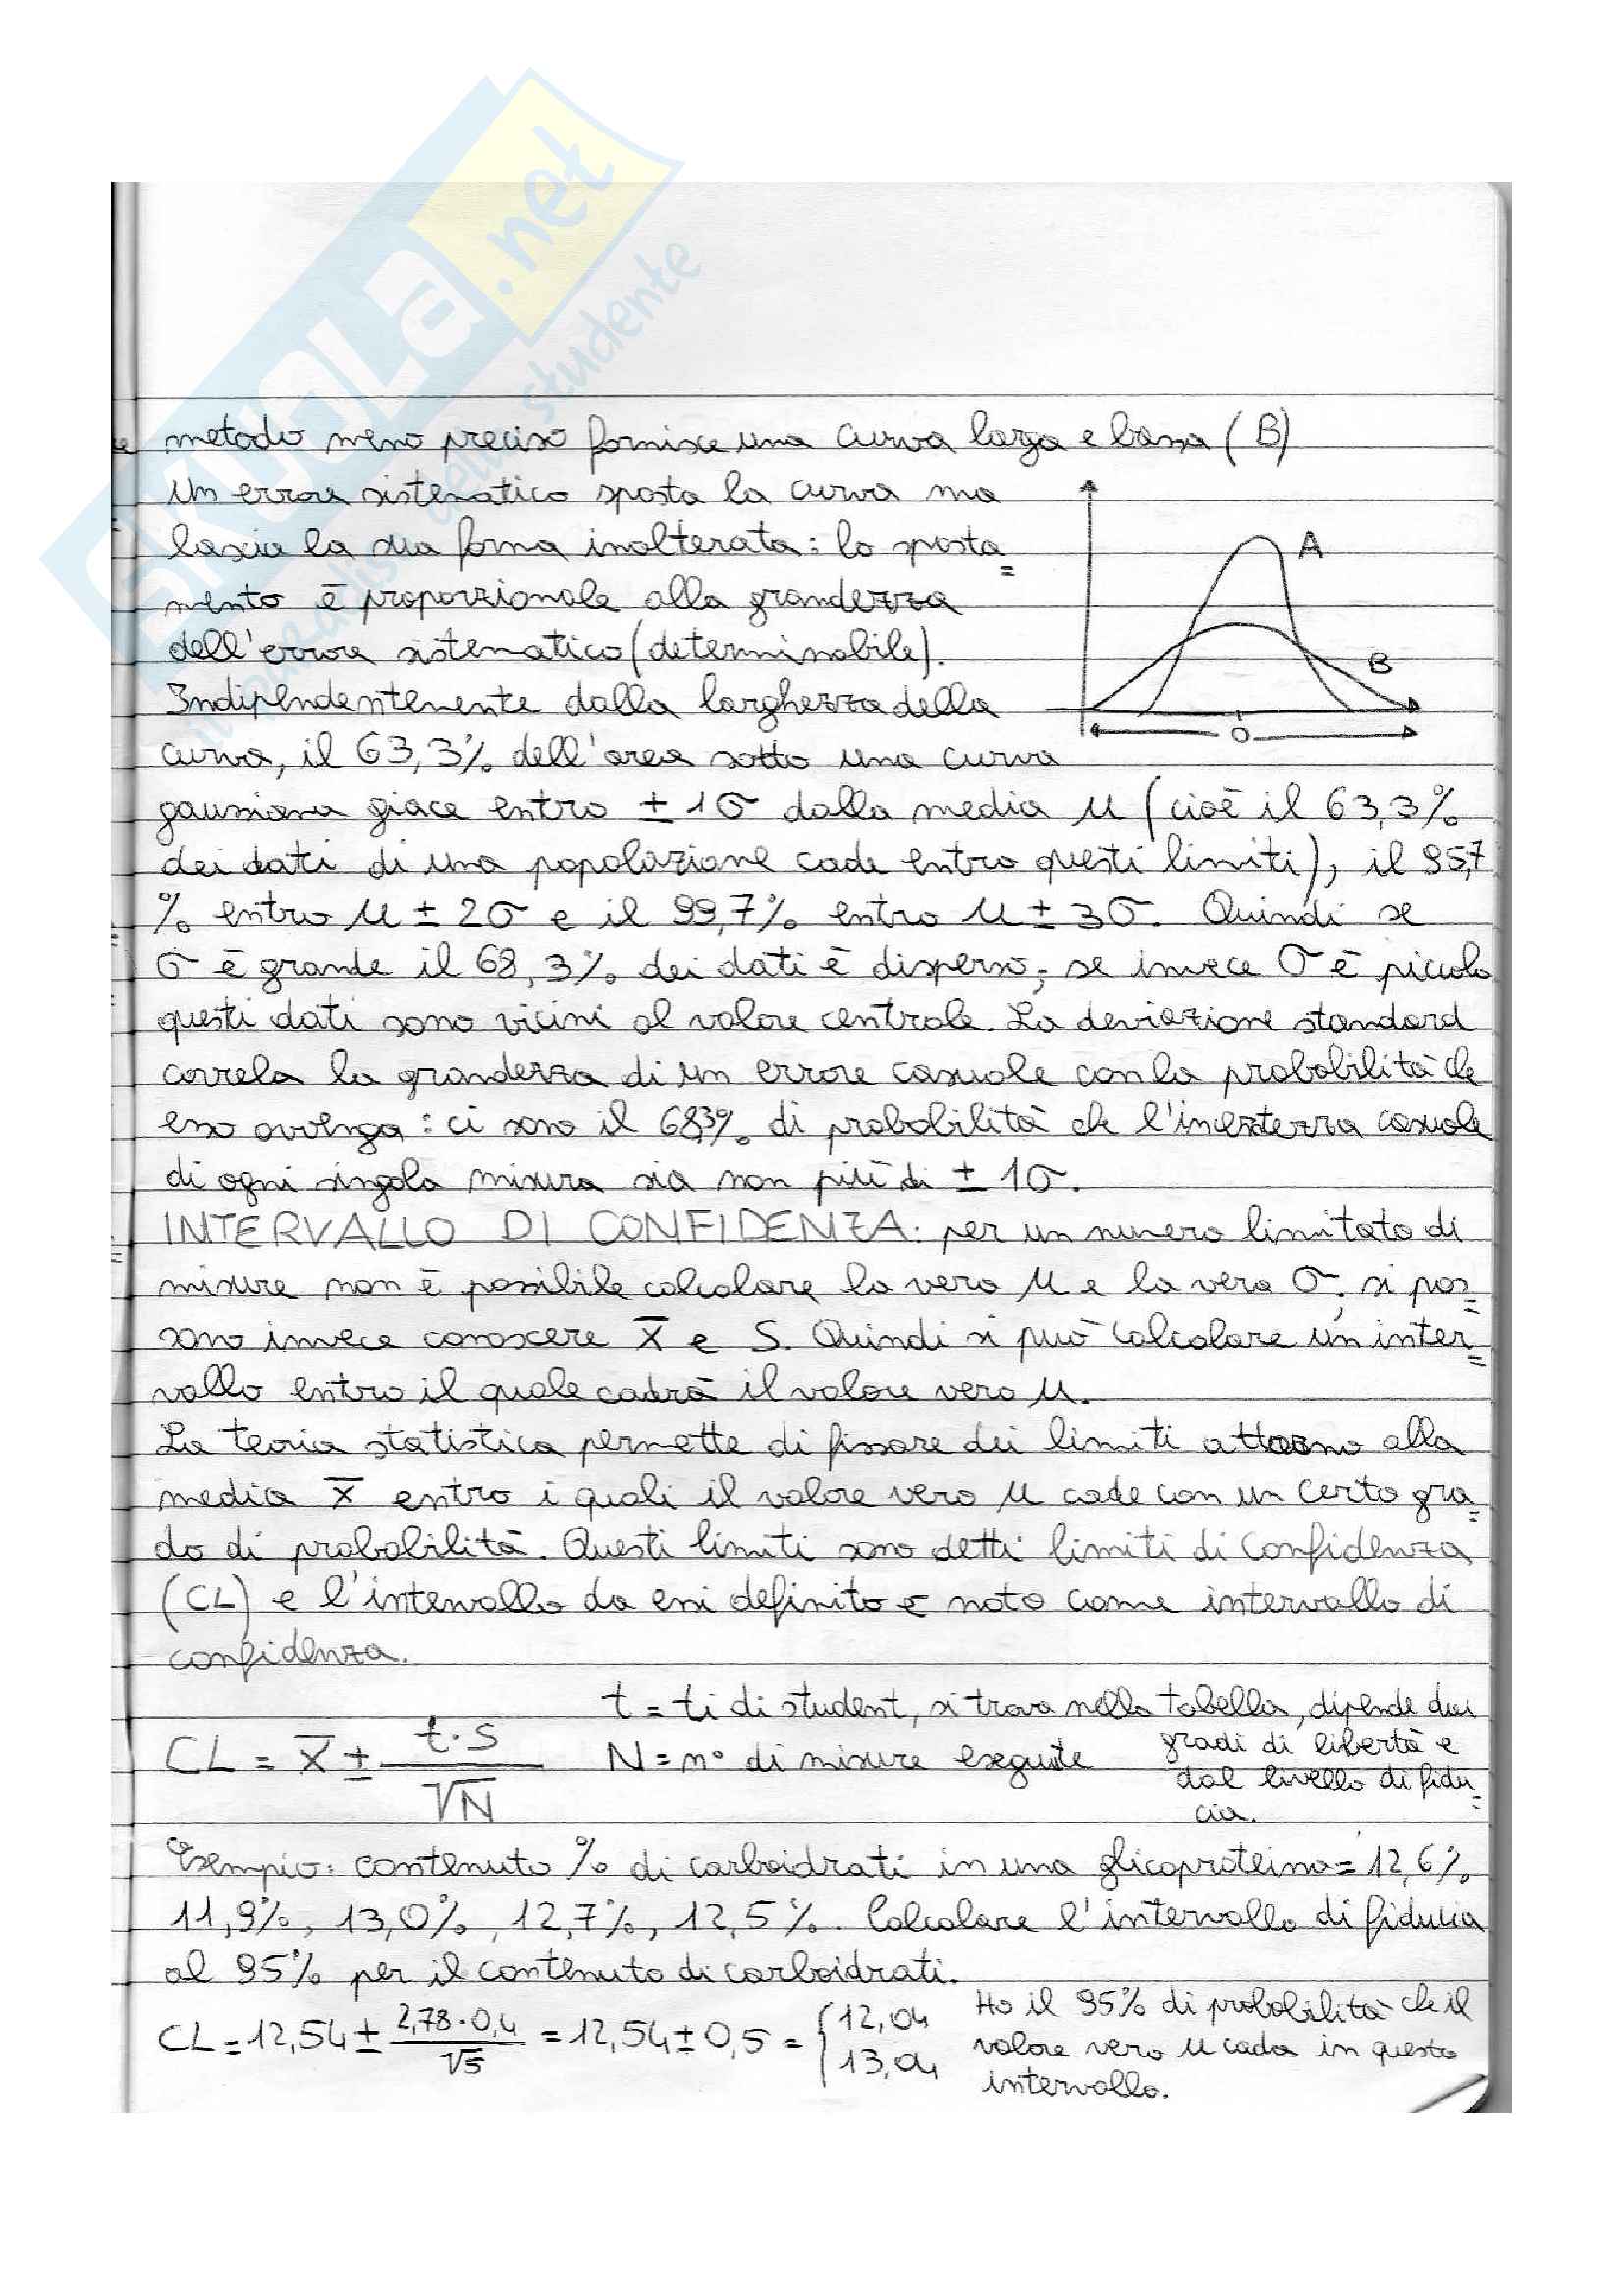 SKUOLA.net
il paradiso dello studente
metodo meno preciso fornisce una curva larga e bassa (B)
Un errore sistematico sposta la curva ma
lascia la sua forma inalterata: lo sposta=
mento è proporzionale alla grandezza
dell'errore sistematico (determinabile).
Indipendentemente dalla larghezza della
curva, il 63,3% dell'area sotto una curva
gaussiana giace entro ± 1σ dalla media μ (cioè il 63,3%
dei dati di una popolazione cade entro questi limiti), il 95,7
% entro μ ± 2σ e il 99,7% entro μ ± 3σ. Quindi se
σ è grande il 68,3% dei dati è disperso; se invece σ è piccola
questi dati sono vicini al valore centrale. La deviazione standard
correla la grandezza di un errore casuale con la probabilità che
esso avvenga: ci sono il 68,3% di probabilità che l'incertezza casuale
di ogni singola misura sia non più di ± 1σ.
INTERVALLO DI CONFIDENZA: per un numero limitato di
misure non è possibile calcolare la vera μ e la vera σ; si pos=
sono invece conoscere x̅ e S. Quindi si può calcolare un inter=
vallo entro il quale cadrà il valore vero μ.
La teoria statistica permette di fissare dei limiti attorno alla
media x̅ entro i quali il valore vero μ cade con un certo gra=
do di probabilità. Questi limiti sono detti limiti di confidenza
(CL) e l'intervallo da essi definito è noto come intervallo di
confidenza.
t = ti di student, si trova nella tabella, dipende dai
gradi di libertà e
dal livello di fidu=
cia.
CL = x̅ ± t·S / √N
N = n° di misure eseguite
Esempio: contenuto % di carboidrati in una glicoproteina = 12,6%
11,9%, 13,0%, 12,7%, 12,5%. Calcolare l'intervallo di fiducia
al 95% per il contenuto di carboidrati.
CL = 12,54 ± 2,78·0,4 / √5 = 12,54 ± 0,5 = { 12,04
13,04
Ho il 95% di probabilità che il
valore vero μ cada in questo
intervallo.
A
B
0